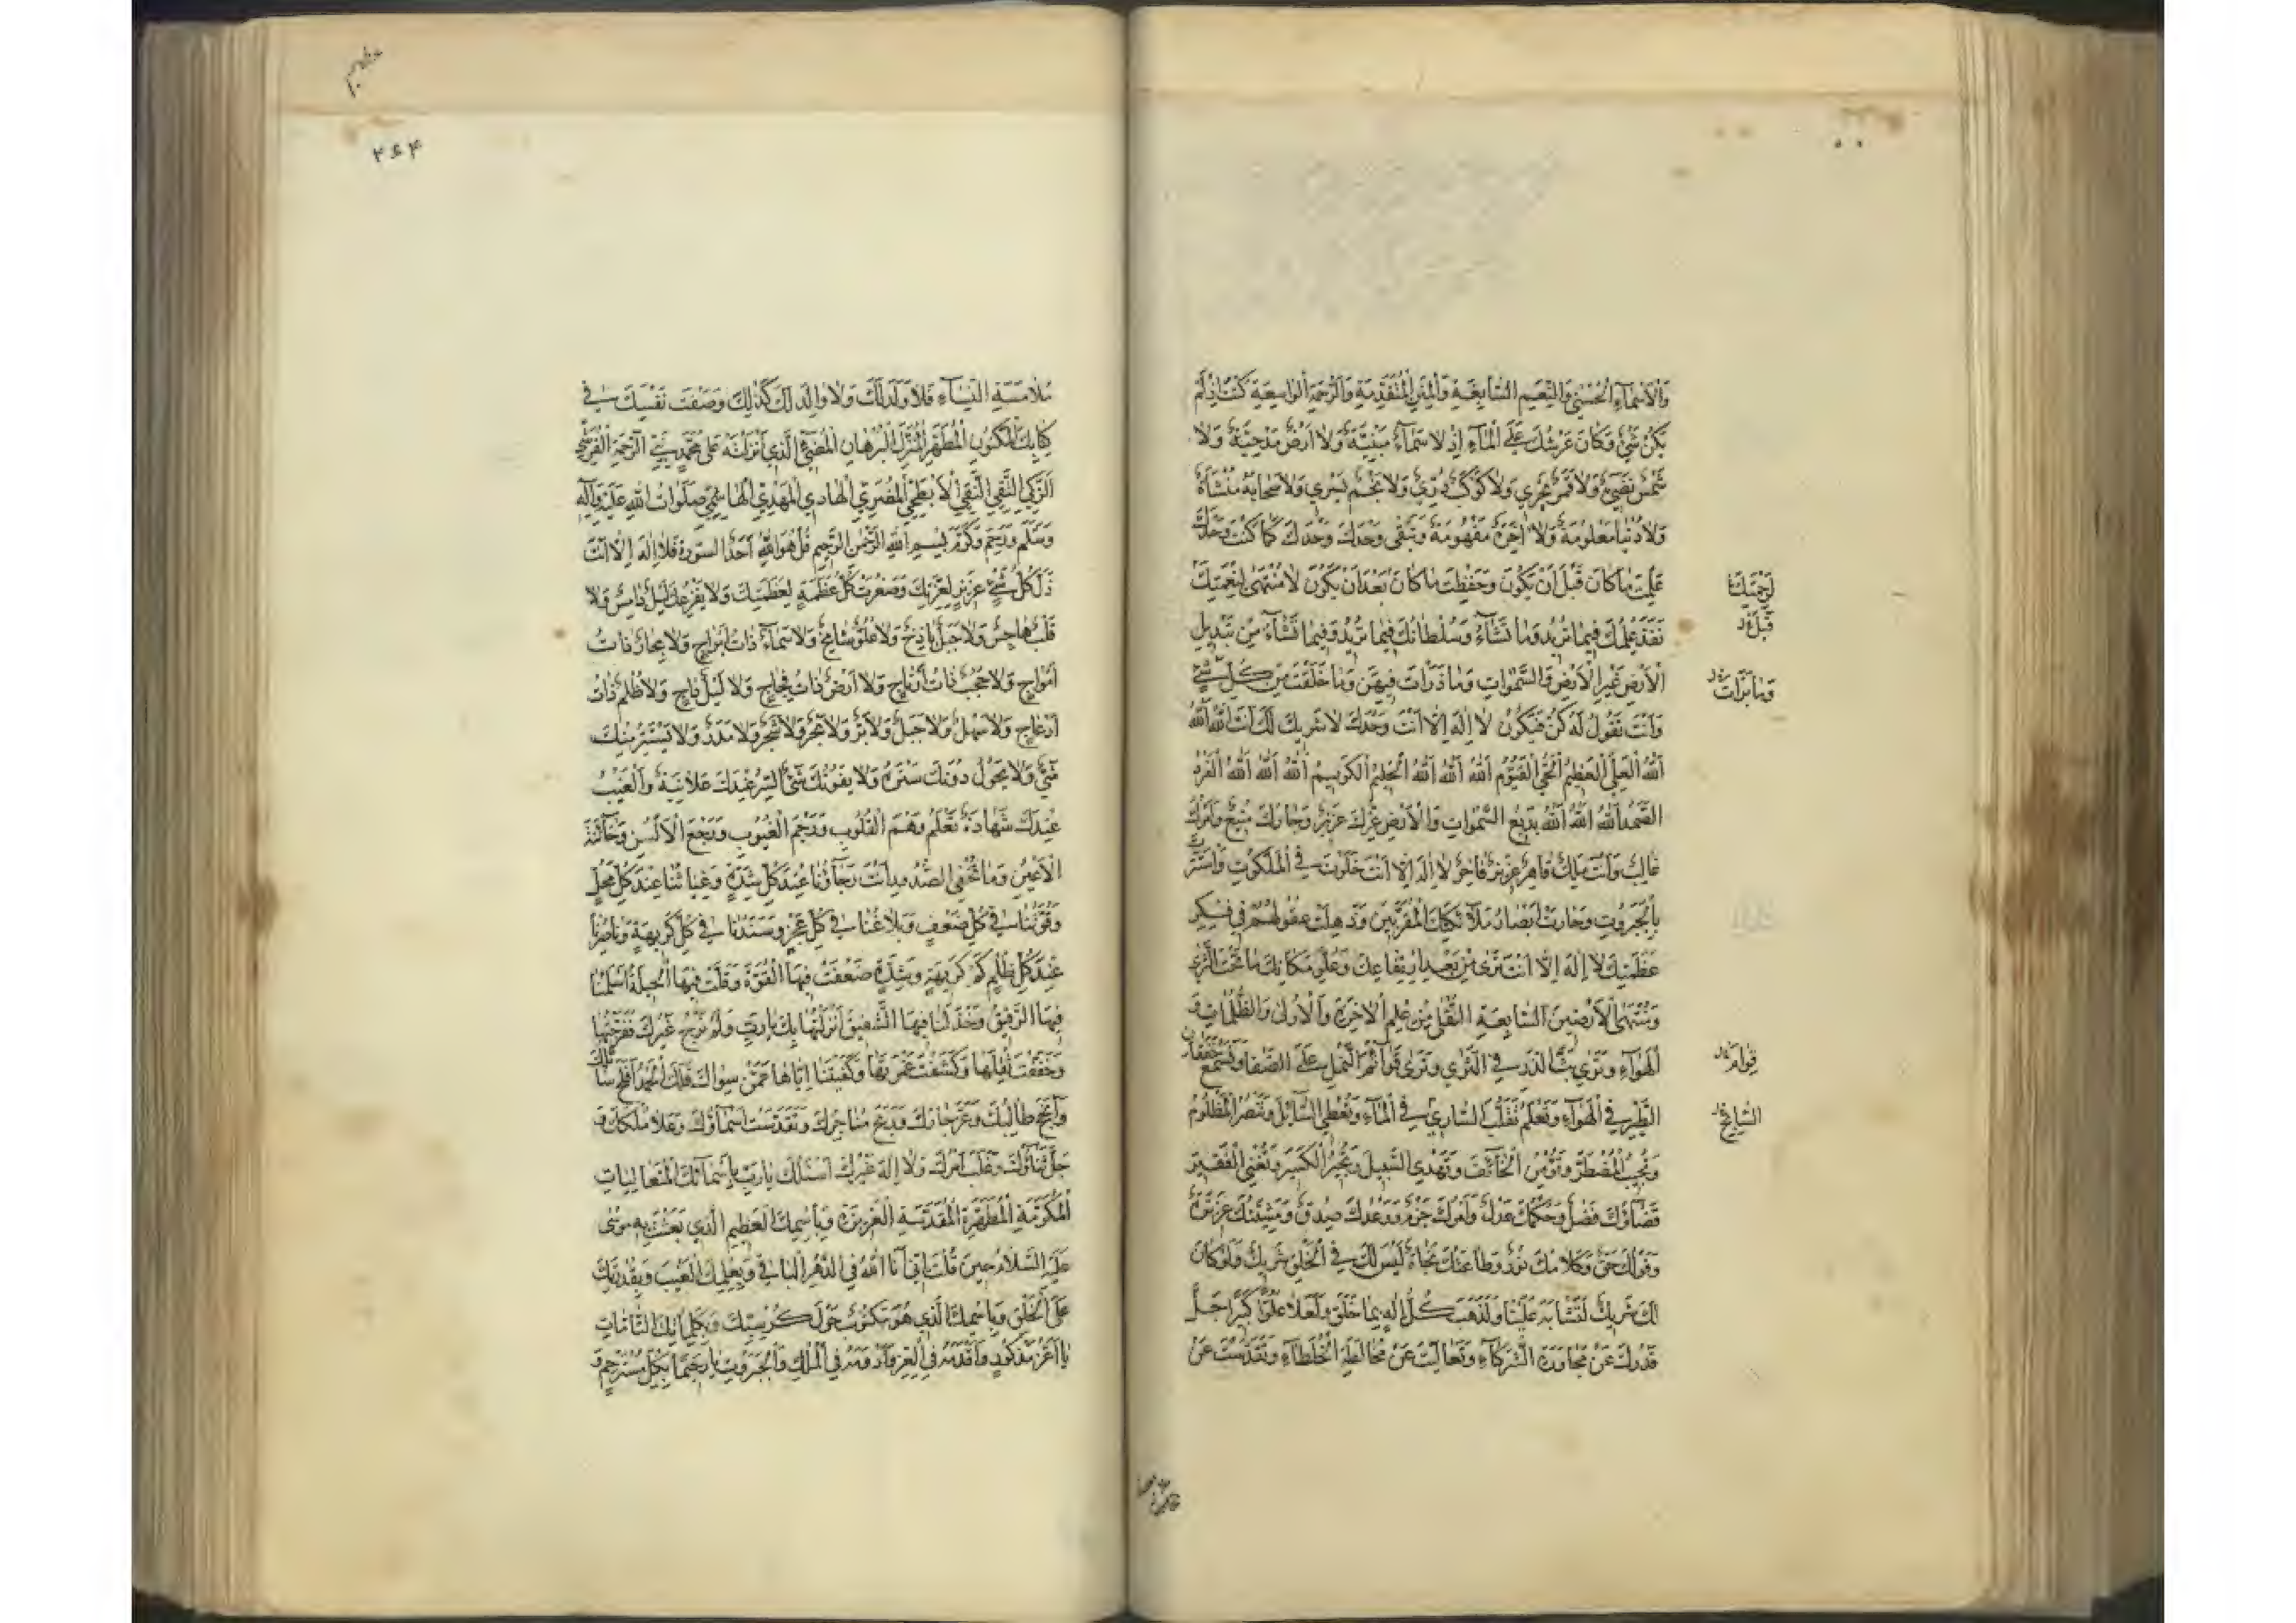 وَالْاَسْمَآءِ الْحُسْنٰى وَالنِّعَمِ السَّابِغَةِ وَالْمِنَنِ الْمُتَقَدِّمَةِ وَالرَّحْمَةِ الْوَاسِعَةِ كُنْتَ اِذْ لَمْ
يَكُنْ شَيْءٌ وَكَانَ عَرْشُكَ عَلَى الْمَآءِ اِذْ لَا سَمَآءٌ مَبْنِيَّةٌ وَلَا اَرْضٌ مَدْحِيَّةٌ وَلَا
شَمْسٌ تُضِيْءُ وَلَا قَمَرٌ يَجْرِي وَلَا كَوْكَبٌ دُرِّيٌّ وَلَا نَجْمٌ يَسْرِي وَلَا سَحَابَةٌ مُنْشَأَةٌ
وَلَا دُنْيَا مَعْلُومَةٌ وَلَا اٰخِرَةٌ مَفْهُومَةٌ وَتَبْقٰى وَحْدَكَ وَحْدَكَ كَمَا كُنْتَ وَحْدَكَ
عَلِمْتَ مَا كَانَ قَبْلَ اَنْ يَكُونَ وَحَفِظْتَ مَا كَانَ بَعْدَ اَنْ يَكُونَ لَا مُنْتَهٰى لِنِعْمَتِكَ
نَفَذَ عِلْمُكَ فِيمَا تُرِيدُ وَمَا تَشَآءُ وَسُلْطَانُكَ فِيمَا تُرِيدُ وَفِيمَا تَشَآءُ مِنْ تَبْدِيلِ
الْاَرْضِ غَيْرَ الْاَرْضِ وَالسَّمٰوَاتِ وَمَا ذَرَأْتَ فِيهِنَّ وَمَا خَلَقْتَ مِنْ كُلِّ شَيْءٍ
وَاَنْتَ تَقُولُ لَهُ كُنْ فَيَكُونُ لَا اِلٰهَ اِلَّا اَنْتَ وَحْدَكَ لَا شَرِيكَ لَكَ اَنْتَ اللّٰهُ اللّٰهُ
اللّٰهُ الْعَلِيُّ الْعَظِيمُ الْحَيُّ الْقَيُّومُ اللّٰهُ اللّٰهُ اللّٰهُ الْحَلِيمُ الْكَرِيمُ اللّٰهُ اللّٰهُ اللّٰهُ الْفَرْدُ
الصَّمَدُ اللّٰهُ اللّٰهُ اللّٰهُ بَدِيعُ السَّمٰوَاتِ وَالْاَرْضِ عِزُّكَ عَزِيزٌ وَجَارُكَ مَنِيعٌ وَاَمْرُكَ
غَالِبٌ وَاَنْتَ مَلِكٌ قَاهِرٌ عَزِيزٌ فَاخِرٌ لَا اِلٰهَ اِلَّا اَنْتَ خَلَوْتَ فِي الْمَلَكُوتِ وَاسْتَتَرْتَ
بِالْجَبَرُوتِ وَحَارَتْ اَبْصَارُ مَلَآئِكَتِكَ الْمُقَرَّبِينَ وَذَهِلَتْ عُقُولُهُمْ فِي فِكْرِ
عَظَمَتِكَ لَا اِلٰهَ اِلَّا اَنْتَ تَرٰى مِنْ بُعْدِ ارْتِفَاعِكَ وَعُلُوِّ مَكَانِكَ مَا تَحْتَ الثَّرٰى
وَمُنْتَهَى الْاَرَضِينَ السَّابِعَةِ السُّفْلٰى مِنْ عِلْمِ الْاٰخِرَةِ وَالْاُولٰى وَالظُّلُمَاتِ وَ
الْهَوَآءِ وَتَرٰى بَثَّ الذَّرِّ فِي الثَّرٰى وَتَرٰى قَوَآئِمَ النَّمْلِ عَلَى الصَّفَا وَتَسْمَعُ خَفَقَانَ
الطَّيْرِ فِي الْهَوَآءِ وَتَعْلَمُ تَقَلُّبَ السَّارِي فِي الْمَآءِ وَتُعْطِي السَّآئِلَ وَتَنْصُرُ الْمَظْلُومَ
وَتُجِيبُ الْمُضْطَرَّ وَتُؤْمِنُ الْخَآئِفَ وَتَهْدِي السَّبِيلَ وَتَجْبُرُ الْكَسِيرَ وَتُغْنِي الْفَقِيرَ
قَضَآؤُكَ فَصْلٌ وَحُكْمُكَ عَدْلٌ وَاَمْرُكَ جَزْمٌ وَوَعْدُكَ صِدْقٌ وَمَشِيَّتُكَ عَزِيزَةٌ
وَقَوْلُكَ حَقٌّ وَكَلَامُكَ نُورٌ وَطَاعَتُكَ نَجَاةٌ لَيْسَ لَكَ فِي الْخَلْقِ شَرِيكٌ وَلَوْ كَانَ
لَكَ شَرِيكٌ لَتَشَابَهَ عَلَيْنَا وَلَذَهَبَ كُلُّ اِلٰهٍ بِمَا خَلَقَ وَلَعَلَا عُلُوًّا كَبِيرًا جَلَّ
قَدْرُكَ عَنْ مُجَاوَرَةِ الشُّرَكَآءِ وَتَعَالَيْتَ عَنْ مُخَالَطَةِ الْخُلَطَآءِ وَتَقَدَّسْتَ عَنْ
لِرَحْمَتِكَ
قَبْلَ
وَمَا بَرَأْتَ
قِوَام
السَّابِحِ
۲۶۴
مُلَامَسَةِ النِّسَآءِ فَلَا وَلَدَ لَكَ وَلَا وَالِدَ لَكَ كَذٰلِكَ وَصَفْتَ نَفْسَكَ فِي
كِتَابِكَ الْمَكْنُونِ الْمُطَهَّرِ الْمُنْزَلِ الْبُرْهَانِ الْمُضِيْءِ الَّذِي اَنْزَلْتَهُ عَلٰى مُحَمَّدٍ نَبِيِّ الرَّحْمَةِ الْقُرَشِيِّ
الزَّكِيِّ التَّقِيِّ النَّقِيِّ الْاَبْطَحِيِّ الْمُضَرِيِّ الْهَادِي الْمَهْدِيِّ الْهَاشِمِيِّ صَلَوَاتُ اللّٰهِ عَلَيْهِ وَاٰلِهِ
وَسَلَّمَ وَرَحِمَ وَكَرَّمَ بِسْمِ اللّٰهِ الرَّحْمٰنِ الرَّحِيمِ قُلْ هُوَ اللّٰهُ اَحَدٌ السورة فَلَا اِلٰهَ اِلَّا اَنْتَ
ذَلَّ كُلُّ شَيْءٍ عَزِيزٍ لِعِزَّتِكَ وَصَغُرَتْ كُلُّ عَظَمَةٍ لِعَظَمَتِكَ وَلَا يُفْزِعُكَ لَيْلٌ دَامِسٌ وَلَا
قَلْبٌ هَاجِسٌ وَلَا جَبَلٌ بَاذِخٌ وَلَا عُلُوٌّ شَامِخٌ وَلَا سَمَآءٌ ذَاتُ اَبْرَاجٍ وَلَا بِحَارٌ ذَاتُ
اَمْوَاجٍ وَلَا حُجُبٌ ذَاتُ اَرْتَاجٍ وَلَا اَرْضٌ ذَاتُ فِجَاجٍ وَلَا لَيْلٌ دَاجٍ وَلَا ظُلَمٌ ذَاتُ
اَدْعَاجٍ وَلَا سَهْلٌ وَلَا جَبَلٌ وَلَا بَرٌّ وَلَا بَحْرٌ وَلَا شَجَرٌ وَلَا مَدَرٌ وَلَا يَسْتَتِرُ مِنْكَ
شَيْءٌ وَلَا يَحُولُ دُونَكَ سِتْرٌ وَلَا يَفُوتُكَ شَيْءٌ السِّرُّ عِنْدَكَ عَلَانِيَةٌ وَالْغَيْبُ
عِنْدَكَ شَهَادَةٌ تَعْلَمُ وَهْمَ الْقُلُوبِ وَرَجْمَ الْغُيُوبِ وَرَجْعَ الْاَلْسُنِ وَخَآئِنَةَ
الْاَعْيُنِ وَمَا تُخْفِي الصُّدُورُ اَنْتَ رَجَآؤُنَا عِنْدَ كُلِّ شِدَّةٍ وَغِيَاثُنَا عِنْدَ كُلِّ مَحْلٍ
وَقُوَّتُنَا فِي كُلِّ ضَعْفٍ وَبَلَاغُنَا فِي كُلِّ عَجْزٍ وَسَنَدُنَا فِي كُلِّ كَرِيهَةٍ وَنَاصِرُنَا
عِنْدَ كُلِّ ظُلْمٍ كَمْ كَرِيهَةٍ وَشِدَّةٍ ضَعُفَتْ فِيهَا الْقُوَّةُ وَقَلَّتْ فِيهَا الْحِيلَةُ اَسْلَمَنَا
فِيهَا الرَّفِيقُ وَخَذَلَنَا فِيهَا الشَّفِيقُ اَنْزَلْتُهَا بِكَ يَا رَبِّ وَلَمْ نَرْجُ غَيْرَكَ فَفَرَّجْتَهَا
وَخَفَّفْتَ ثِقْلَهَا وَكَشَفْتَ غَمْرَتَهَا وَكَفَيْتَنَا اِيَّاهَا عَمَّنْ سِوَاكَ فَلَكَ الْحَمْدُ اَفْلَحَ سَآئِلُكَ
وَاَنْجَحَ طَالِبُكَ وَعَزَّ جَارُكَ وَرَبِحَ مُتَاجِرُكَ وَتَقَدَّسَتْ اَسْمَآؤُكَ وَعَلَا مُلْكُكَ وَ
جَلَّ ثَنَآؤُكَ وَغَلَبَ اَمْرُكَ وَلَا اِلٰهَ غَيْرُكَ اَسْئَلُكَ يَا رَبِّ بِاَسْمَآئِكَ الْمُتَعَالِيَاتِ
الْمُكَرَّمَةِ الْمُطَهَّرَةِ الْمُقَدَّسَةِ الْعَزِيزَةِ وَبِاسْمِكَ الْعَظِيمِ الَّذِي بَعَثْتَ بِهِ مُوسٰى
عَلَيْهِ السَّلَامُ حِينَ قُلْتَ اِنِّي اَنَا اللّٰهُ فِي الدَّهْرِ الْبَاقِي وَبِعِلْمِكَ الْغَيْبَ وَبِقُدْرَتِكَ
عَلَى الْخَلْقِ وَبِاسْمِكَ الَّذِي هُوَ مَكْتُوبٌ حَوْلَ كُرْسِيِّكَ وَبِكَلِمَاتِكَ التَّامَّاتِ
يَا اَعَزَّ مَذْكُورٍ وَاَقْدَمَهُ فِي الْعِزِّ وَاَدْوَمَهُ فِي الْمُلْكِ وَالْجَبَرُوتِ يَا رَحِيمًا بِكُلِّ مُسْتَرْحِمٍ وَ